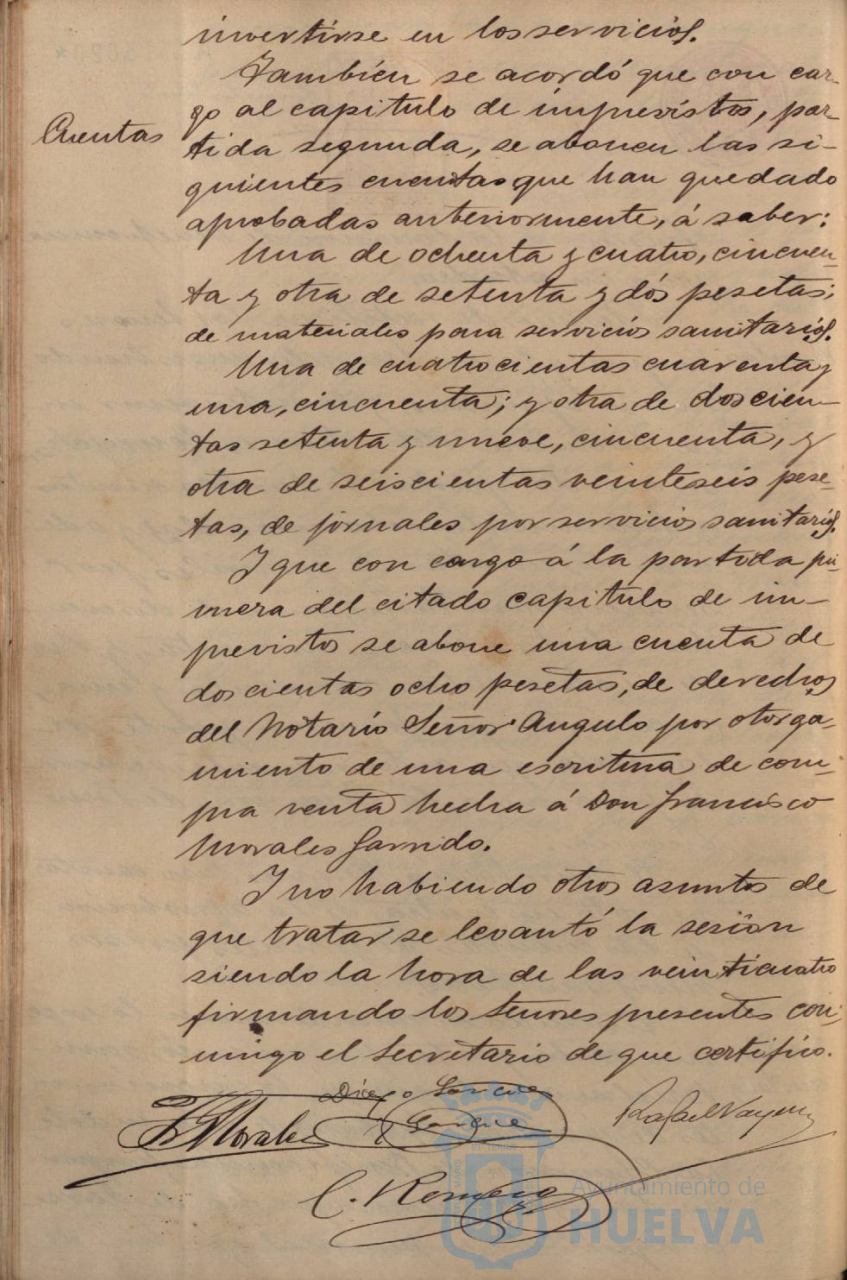 invertirse en los servicios.
También se acordó que con car-
go al capitulo de imprevistos, par-
Cuentas
tida segunda, se abonen las si-
guientes cuentas que han quedado
aprobadas anteriormente, á saber:
Una de ochenta y cuatro, cincuen-
ta y otra de setenta y dós pesetas;
de materiales para servicios sanitarios.
Una de cuatrocientas cuarenta y
una, cincuenta; y otra de doscien-
tas setenta y nueve, cincuenta, y
otra de seiscientas veinteseis pese-
tas, de jornales por servicios sanitarios.
Y que con cargo á la partida pri-
mera del citado capitulo de im-
previstos se abone una cuenta de
doscientas ocho pesetas, de derechos
del Notario Señor Angulo por otorga-
miento de una escritura de com-
pra venta hecha á Don Francisco
Morales Garrido.
Y no habiendo otros asuntos de
que tratar se levantó la sesión
siendo la hora de las veinticuatro
firmando los Señores presentes con-
migo el Secretario de que certifico.
Diego
F. Morales
Rafael
C. Romero
Ayuntamiento de
HUELVA